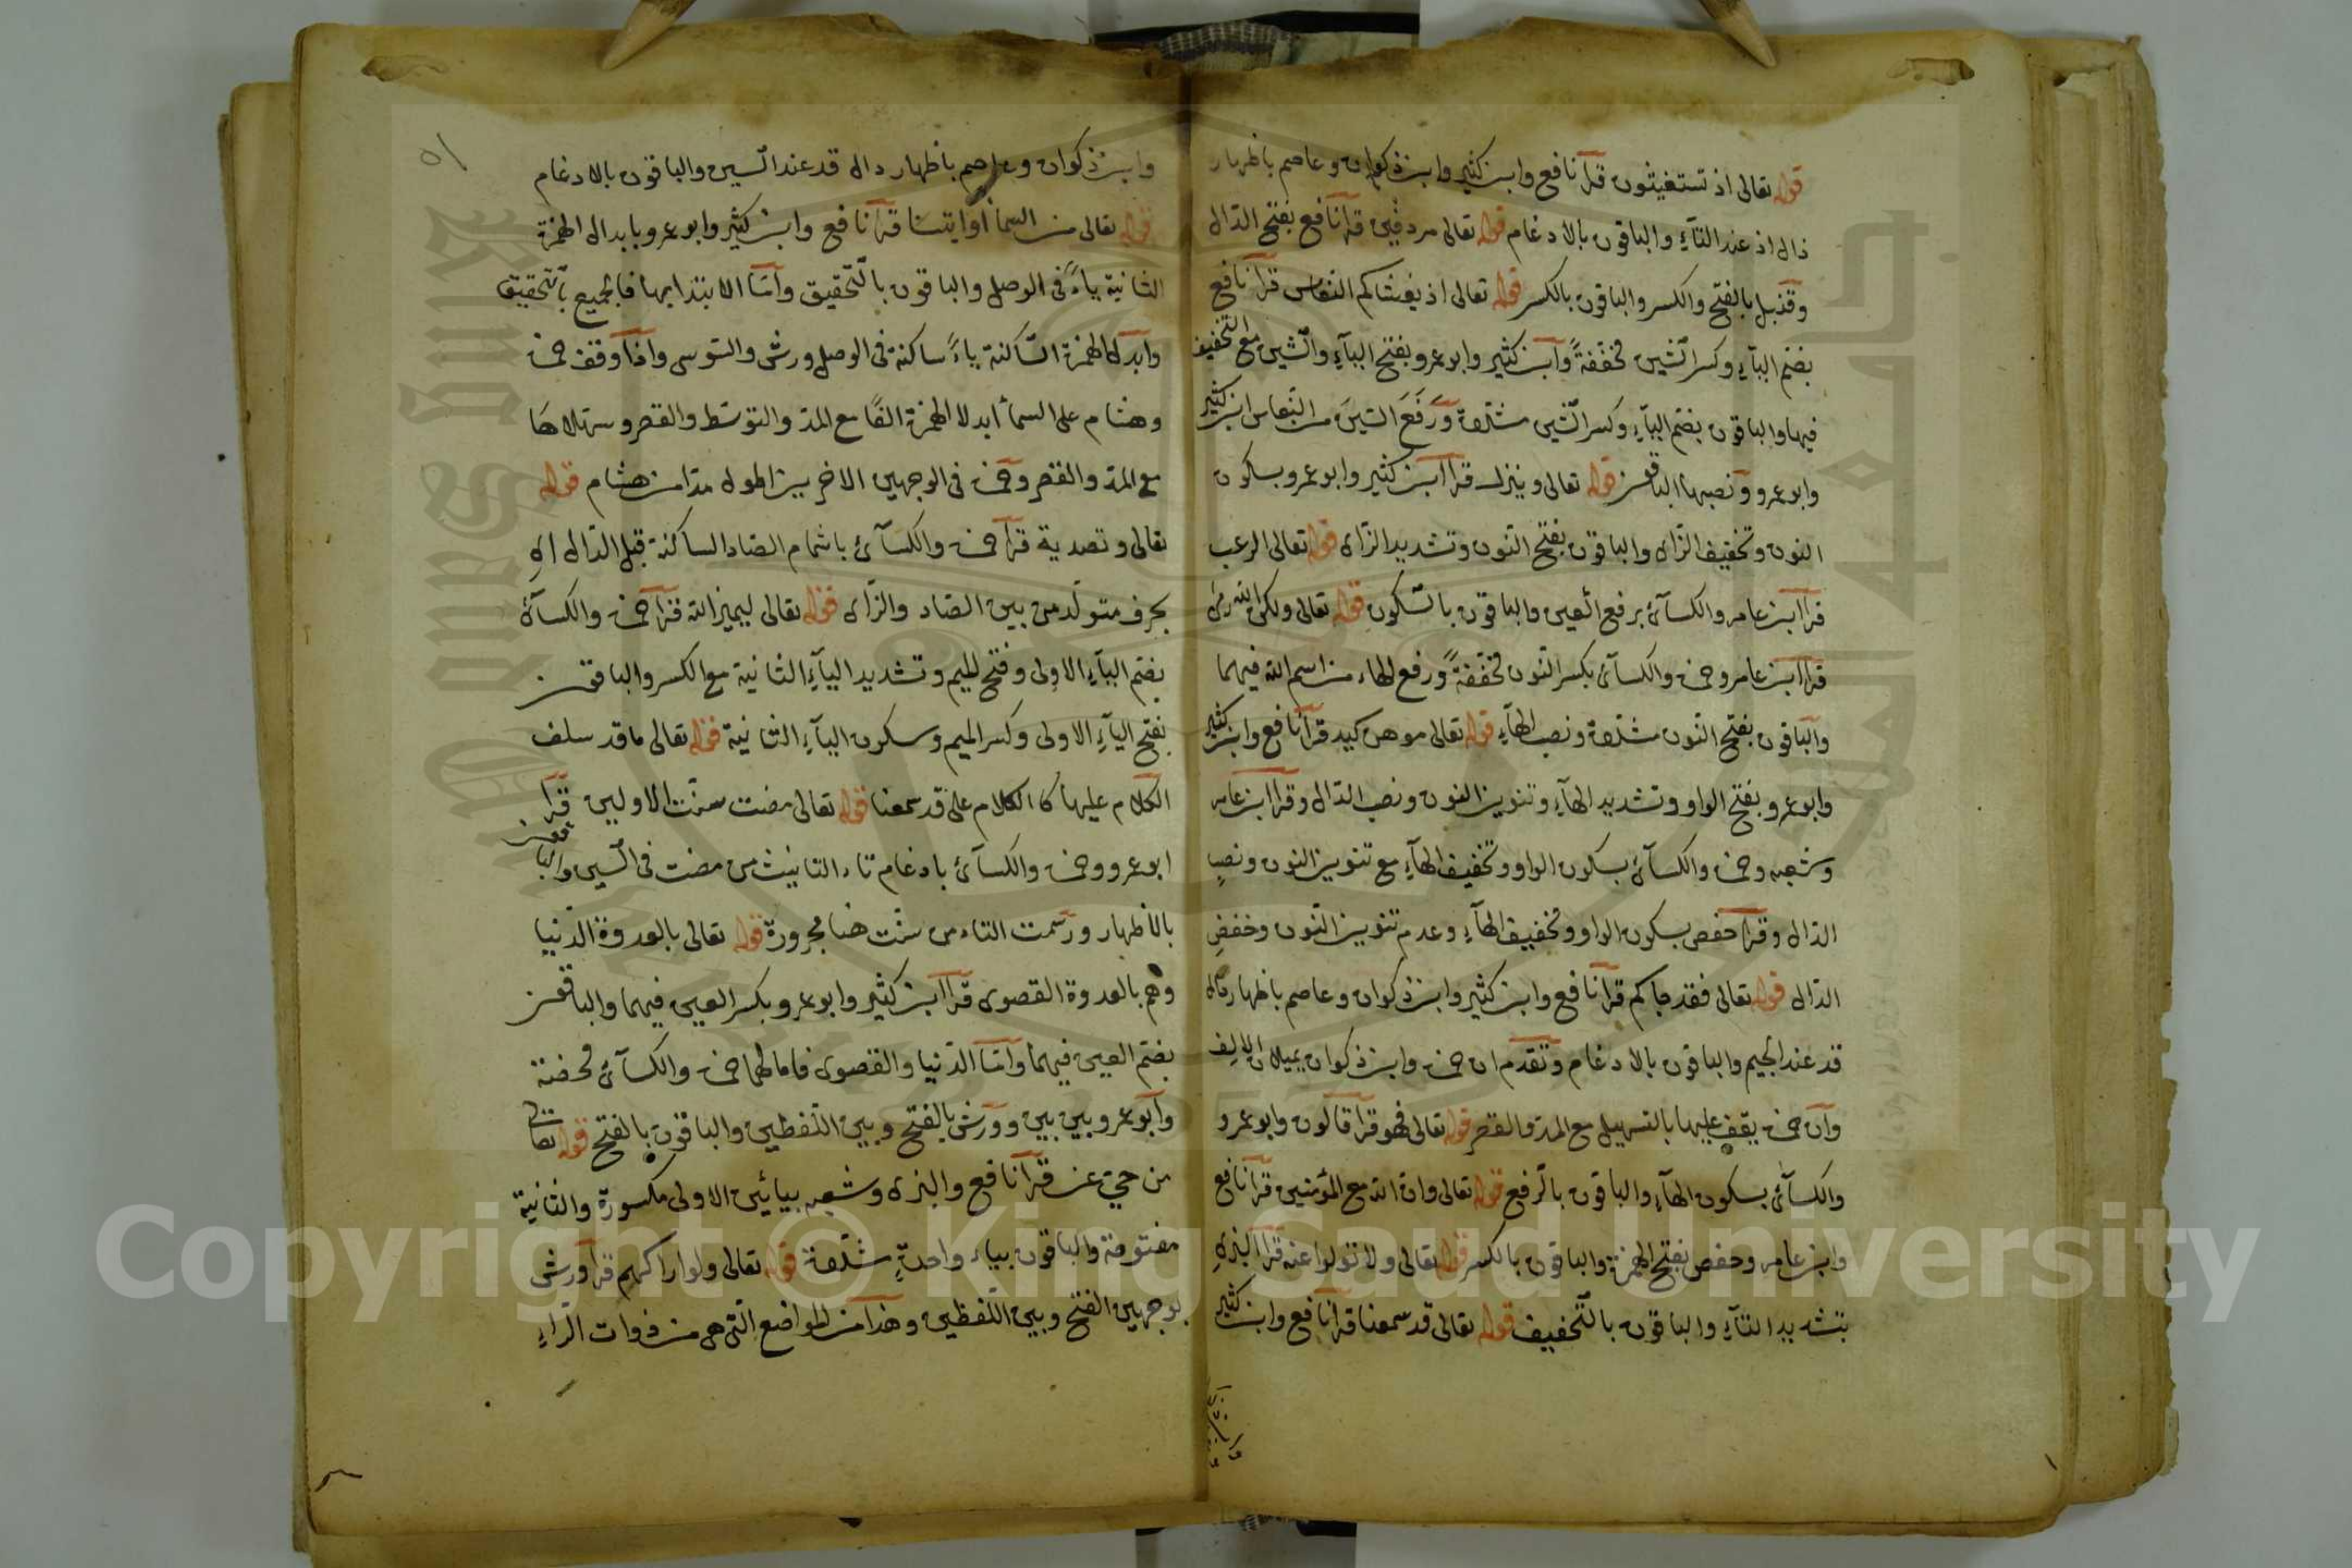 قوله تعالى اذ تستغيثون قرأ نافع وابن كثير وابن ذكوان وعاصم باظهار
ذال اذ عند التآء والباقون بالادغام قوله تعالى مردفين قرأ نافع بفتح الدّال
وقنبل بالفتح والكسر والباقون بالكسر قوله تعالى اذ يغشاكم النعاس قرأ نافع
بضم اليآء وكسر الشين مخففةً وابن كثير وابو عمرو بفتح اليآء والشين مع التخفيف
فيها والباقون بضم اليآء وكسر الشين مشدّدة ورَفَعَ السّينَ من النعاس ابن كثير
وابو عمرو ونصبها الباقون قوله تعالى وينزل قرأ ابن كثير وابو عمرو بسكون
النون وتخفيف الزاى والباقون بفتح النّون وتشديد الزّاى قوله تعالى الرعب
قرأ ابن عامر والكسآئ برفع العين والباقون بالسّكون قوله تعالى ولكن الله رمى
قرأ ابن عامر وحمزة والكسآئ بكسر النّون مخفّفةً ورفع الهاء من اسم الله فيهما
والباقون بفتح النّون مشدّدة ونصب الهآء قوله تعالى موهن كيد قرأ نافع وابن كثير
وابو عمرو بفتح الواو وتشديد الهآء وتنوين النون ونصب الدّال وقرأ ابن عامر
وشعبه وحمزة والكسآئ بسكون الواو وتخفيف الهآء مع تنوين النون ونصب
الدّال وقرأ حفص بسكون الواو وتخفيف الهآء وعدم تنوين النّون وخفض
الدّال قوله تعالى فقد جاكم قرأ نافع وابن كثير وابن ذكوان وعاصم باظهار دال
قد عند الجيم والباقون بالادغام وتقدم ان حمزة وابن ذكوان يميلان الالف
وانّ حمزة يقف عليها بالتسهيل مع المدّ والقصر قوله تعالى فهو قرأ قالون وابو عمرو
والكسآئ بسكون الهآء والباقون بالرّفع قوله تعالى وان الله مع المؤمنين قرأ نافع
وابن عامر وحفص بفتح الهمزة والباقون بالكسر قوله تعالى ولا تولوا عنه قرأ البزى
بتشديد التآء والباقون بالتّخفيف قوله تعالى قد سمعنا قرأ نافع وابن كثير
وابن ذكوان وعاصم باظهار دال قد عند السّين والباقون بالادغام
قوله تعالى من السمآ اوايتنا قرأ نافع وابن كثير وابو عمرو بابدال الهمزة
الثانية ياءً فى الوصل والباقون بالتّحقيق وأمّا الابتدا بها فالجميع بالتحقيق
وابدل الهمزة السّاكنة ياءً ساكنة فى الوصل ورش والسّوسى واذا وقف حمزة
وهشام على السمآ ابدلا الهمزة الفًا مع المدّ والتوسّط والقصر وسهّلاها
مع المدّ والقصر وحمزة فى الوجهين الاخرين اطول مدّا من هشام قوله
تعالى وتصدية قرأ حمزة والكسآئ باشمام الصّاد الساكنة قبل الدّال اى
بحرف متولّد من بين الصّاد والزّاى قوله تعالى ليميز الله قرأ حمزة والكسآئ
بضم اليآء الاولى وفتح الميم وتشديد اليآء الثانية مع الكسر والباقون
بفتح اليآء الاولى وكسر الميم وسكون اليآء الثانية قوله تعالى ما قد سلف
الكلام عليها كالكلام على قد سمعنا قوله تعالى مضت سنّت الاولين قرأ
ابو عمرو وحمزة والكسآئ بادغام تاء التانيث من مضت فى السّين والباقون
بالاظهار ورسمت التاء من سنّت هنا مجرورة قوله تعالى بالعدوة الدّنيا
وهم بالعدوة القصوى قرأ ابن كثير وابو عمرو بكسر العين فيهما والباقون
بضم العين فيهما وأمّا الدّنيا والقصوى فامالهما حمزة والكسآئ محضة
وابو عمرو بين بين وورش بالفتح وبين اللّفظين والباقون بالفتح قوله تعالى
من حىّ عن قرأ نافع والبزى وشعبه بيائين الاولى مكسورة والثانية
مفتوحة والباقون بياء واحدةٍ مشدّدة قوله تعالى ولو اراكهم قرأ ورش
بوجهين الفتح وبين اللّفظين وهذا من المواضع الّتى هى من ذوات الرّاء
Copyright © King Saud University